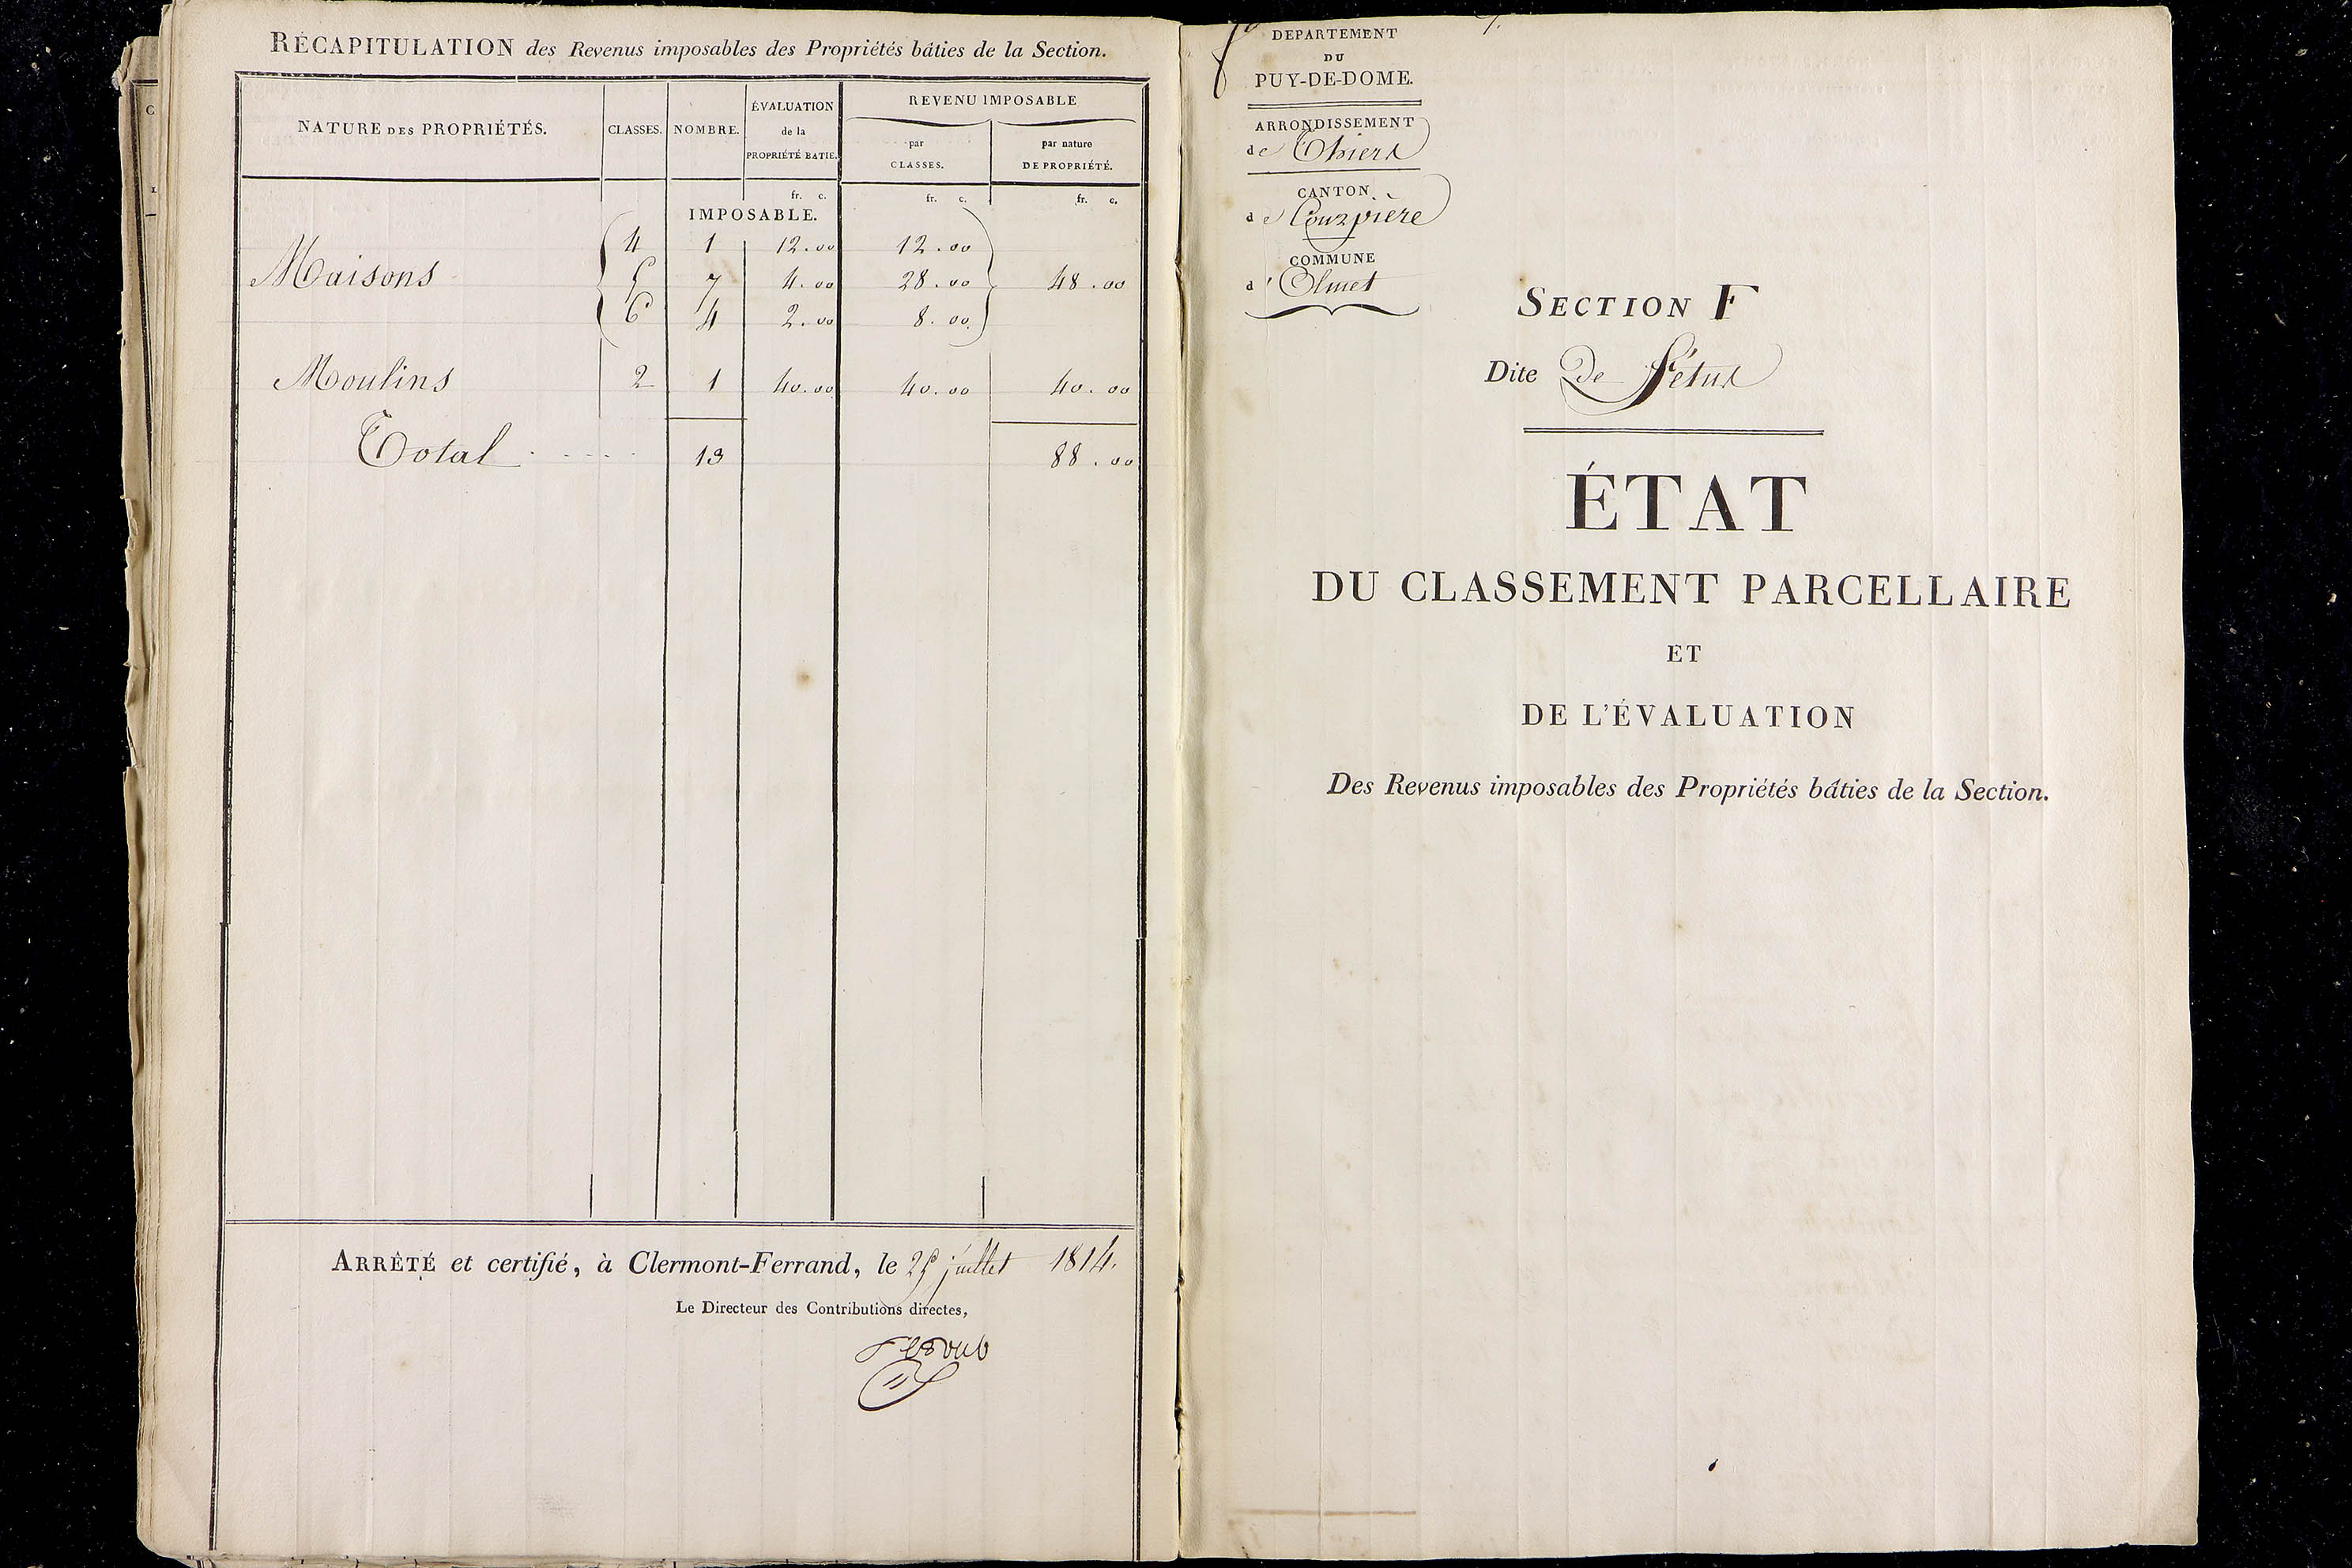 RÉCAPITULATION des Revenus imposables des Propriétés bâties de la Section.
NATURE DES PROPRIÉTÉS. CLASSES. NOMBRE. ÉVALUATION de la PROPRIÉTÉ BATIE. REVENU IMPOSABLE
par CLASSES. par nature DE PROPRIÉTÉ.
fr. c. fr. c. fr. c.
IMPOSABLE.
4 1 12.00 12.00
Maisons 5 7 4.00 28.00 48.00
6 4 2.00 8.00
Moulins 2 1 40.00 40.00 40.00
Total 13 88.00
ARRÊTÉ et certifié, à Clermont-Ferrand, le 25 juillet 1814.
Le Directeur des Contributions directes,
DEPARTEMENT
DU
PUY-DE-DOME.
ARRONDISSEMENT
de Thiers
CANTON
de Courpière
COMMUNE
d'Olmet
SECTION F
Dite De
ÉTAT
DU CLASSEMENT PARCELLAIRE
ET
DE L'ÉVALUATION
Des Revenus imposables des Propriétés bâties de la Section.